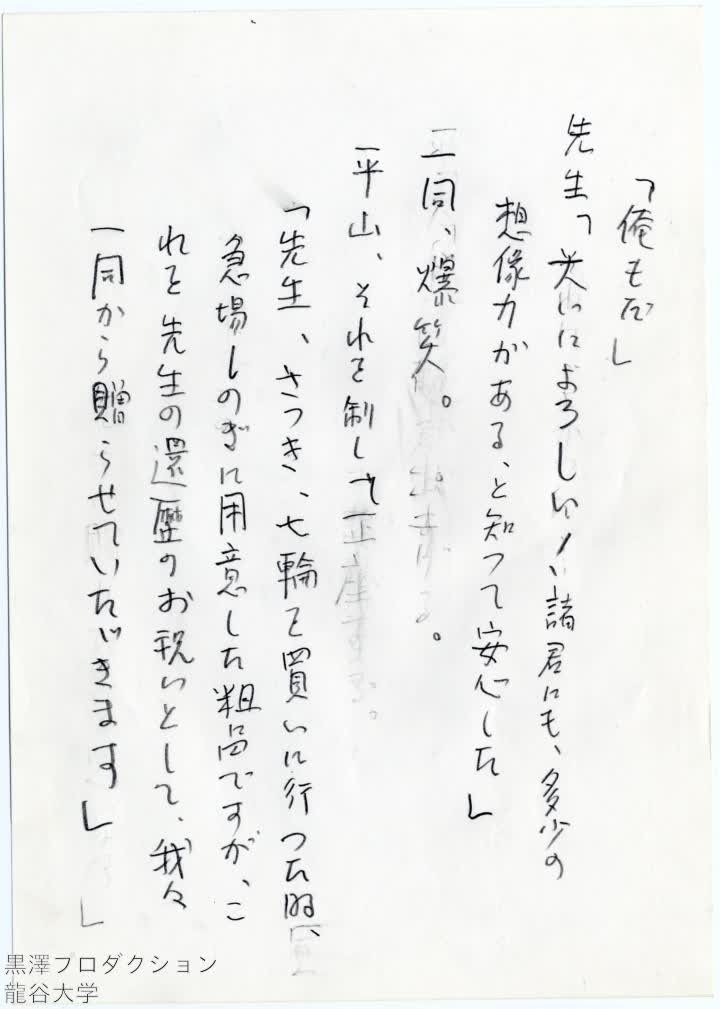 「俺もだ」
先生「大いによろしい！諸君にも、多少の
想像力がある、と知つて安心した」
一同、爆笑。
平山、それを制して
「先生、さつき、七輪を買いに行つた時、
急場しのぎに用意した粗品ですが、こ
れを先生の還歴のお祝いとして、我々
一同から贈らせていただきます」
黒澤プロダクション
龍谷大学